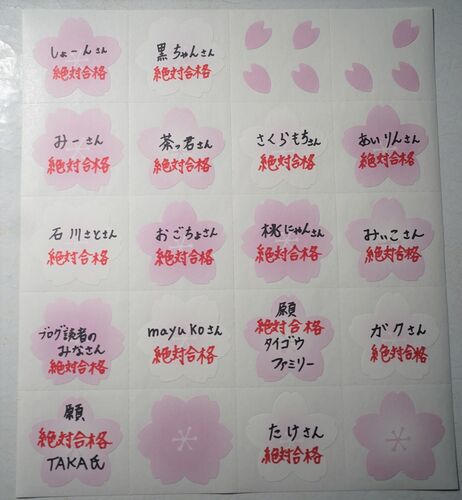 しょーんさん
絶対合格
黒ちゃんさん
絶対合格
みーさん
絶対合格
茶っ君さん
絶対合格
さくらもちさん
絶対合格
あいりんさん
絶対合格
石川さとさん
絶対合格
おごちょさん
絶対合格
桃にゃんさん
絶対合格
みぃこさん
絶対合格
ブログ読者の
みなさん
絶対合格
mayukoさん
絶対合格
願
絶対合格
タイゴウ
ファミリー
がクさん
絶対合格
願
絶対合格
TAKA氏
たけさん
絶対合格